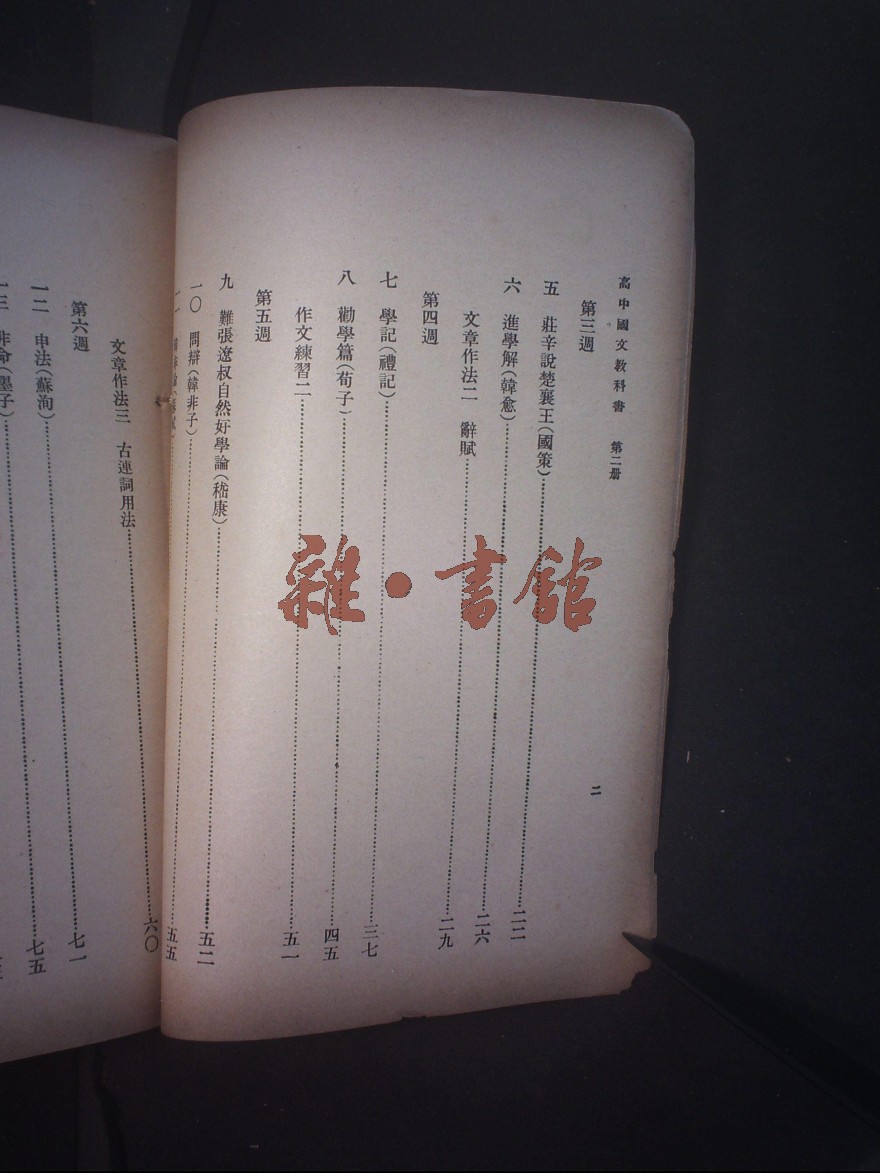 高中國文教科書　第二册
二
第三週
五　莊辛說楚襄王(國策)……二二
六　進學解(韓愈)……二六
文章作法二　辭賦……二九
第四週
七　學記(禮記)……三七
八　勸學篇(荀子)……四五
作文練習二……五一
第五週
九　難張遼叔自然好學論(嵇康)……五二
一〇　問辯(韓非子)……五五
文章作法三　古連詞用法……六〇
第六週
一二　申法(蘇洵)……七一
一三　非命(墨子)……七五
雜·書館